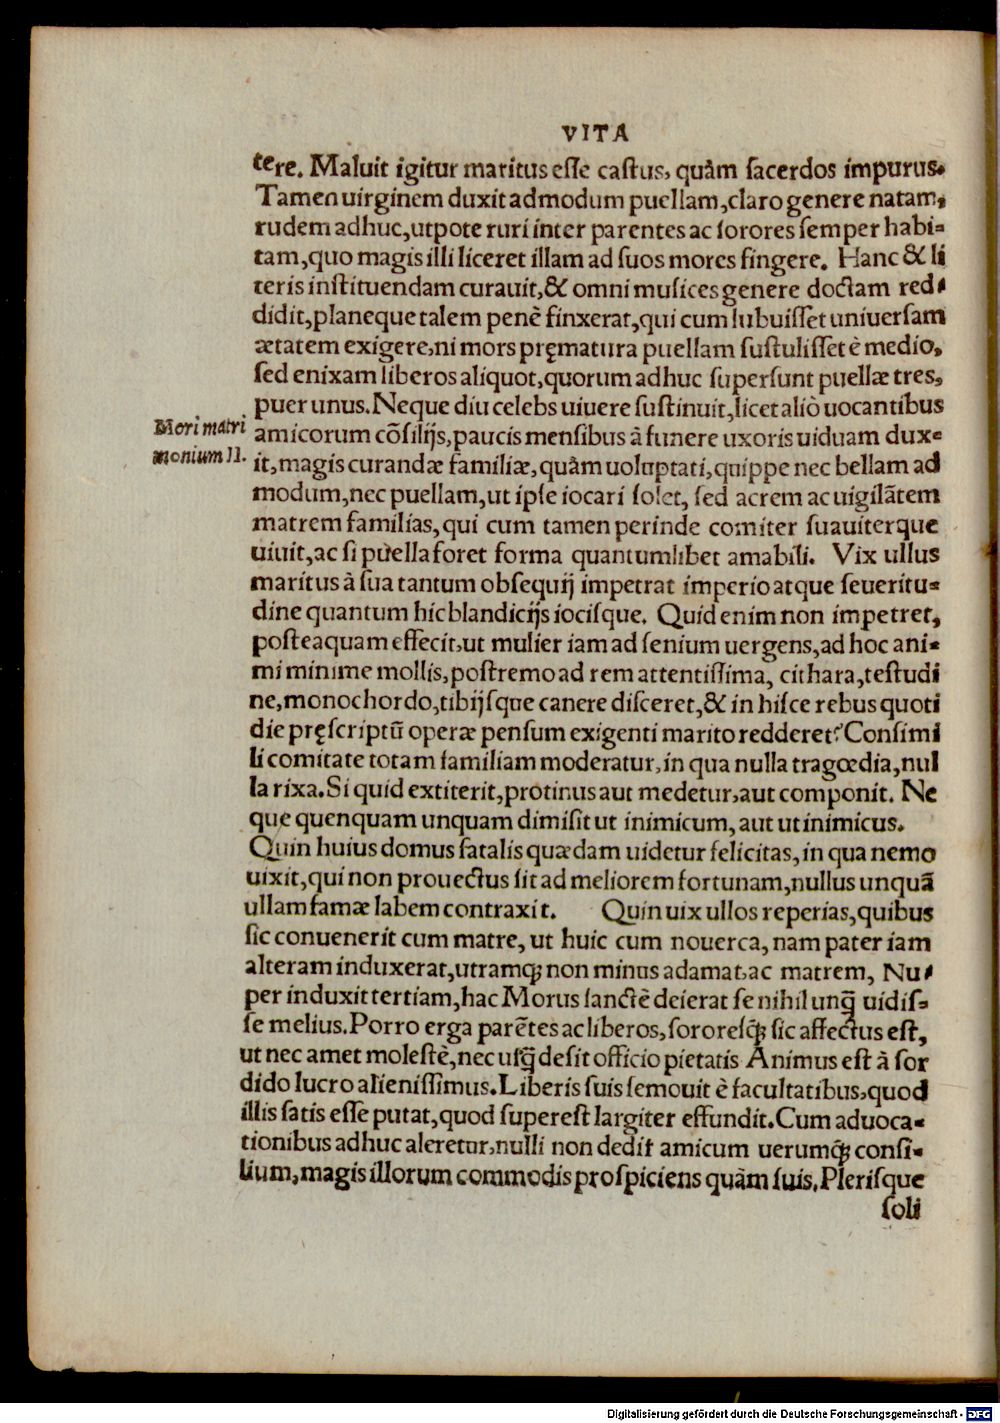 VITA
tere. Maluit igitur maritus esse castus, quàm sacerdos impurus.
Tamen uirginem duxit admodum puellam, claro genere natam,
rudem adhuc, utpote ruri inter parentes ac sorores semper habi-
tam, quo magis illi liceret illam ad suos mores fingere. Hanc & li
teris instituendam curauit, & omni musices genere doctam red-
didit, planeque talem penè finxerat, qui cum lubuisset uniuersam
ætatem exigere, ni mors pręmatura puellam sustulisset è medio,
sed enixam liberos aliquot, quorum adhuc supersunt puellæ tres,
puer unus. Neque diu celebs uiuere sustinuit, licet aliò uocantibus
Mori matri
monium II.
amicorum cōsilijs, paucis mensibus à funere uxoris uiduam dux-
it, magis curandæ familiæ, quàm uoluptati, quippe nec bellam ad
modum, nec puellam, ut ipse iocari solet, sed acrem ac uigilātem
matrem familias, qui cum tamen perinde comiter suauiterque
uiuit, ac si puella foret forma quantumlibet amabili. Vix ullus
maritus à sua tantum obsequij impetrat imperio atque seueritu-
dine quantum hic blandicijs iocisque. Quid enim non impetret,
posteaquam effecit, ut mulier iam ad senium uergens, ad hoc ani-
mi minime mollis, postremo ad rem attentissima, cithara, testudi
ne, monochordo, tibijsque canere disceret, & in hisce rebus quoti
die pręscriptū operæ pensum exigenti marito redderet? Consimi
li comitate totam familiam moderatur, in qua nulla tragœdia, nul
la rixa. Si quid extiterit, protinus aut medetur, aut componit. Ne
que quenquam unquam dimisit ut inimicum, aut ut inimicus.
Quin huius domus fatalis quædam uidetur felicitas, in qua nemo
uixit, qui non prouectus sit ad meliorem fortunam, nullus unquā
ullam famæ labem contraxit. Quin uix ullos reperias, quibus
sic conuenerit cum matre, ut huic cum nouerca, nam pater iam
alteram induxerat, utramq; non minus adamat, ac matrem, Nu-
per induxit tertiam, hac Morus sanctè deierat se nihil unq̃ uidis-
se melius. Porro erga parētes ac liberos, sororesq; sic affectus est,
ut nec amet molestè, nec usq̃ desit officio pietatis Animus est à sor
dido lucro alienissimus. Liberis suis semouit è facultatibus, quod
illis satis esse putat, quod superest largiter effundit. Cum aduoca-
tionibus adhuc aleretur, nulli non dedit amicum uerumq; consi-
lium, magis illorum commodis prospiciens quàm suis. Plerisque
soli
Digitalisierung gefördert durch die Deutsche Forschungsgemeinschaft - DFG